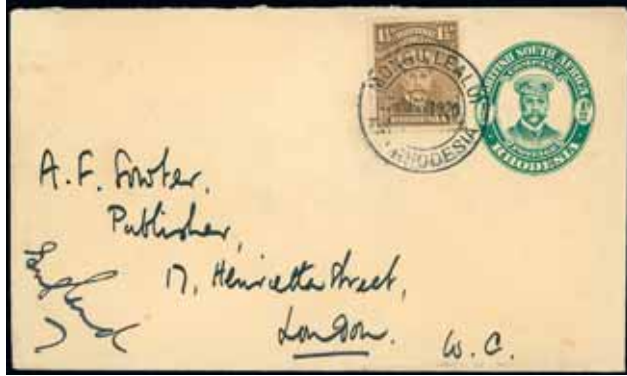 1½ 1½
MONGU-LEALUI
1920
RHODESIA
BRITISH SOUTH AFRICA
COMPANY
RHODESIA
A. F. Fowler.
Publisher,
17, Henrietta Street,
London. W. C.
England